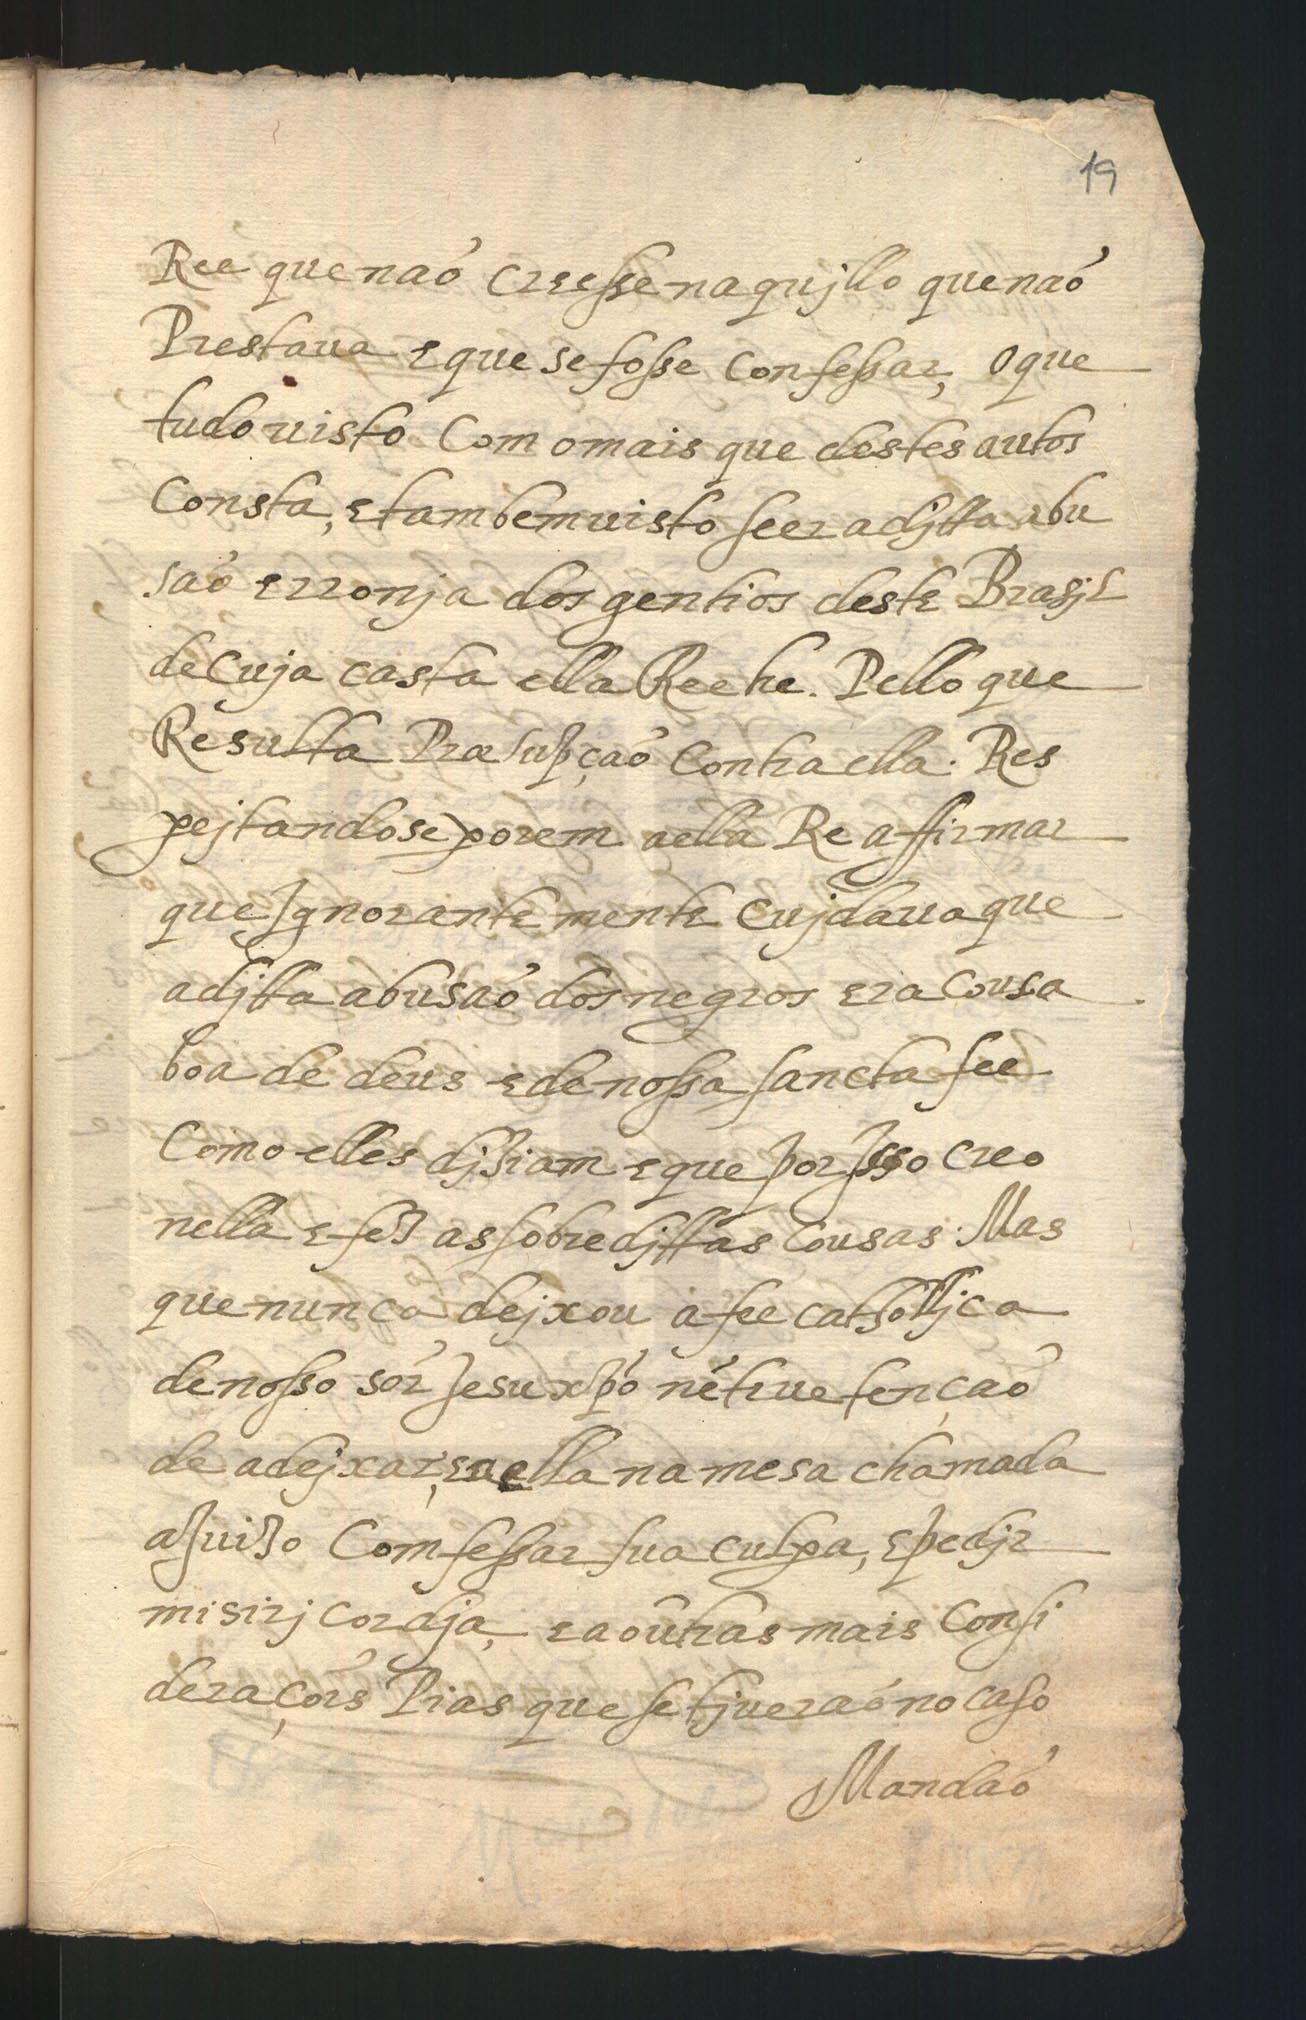 19
Ree que naõ creesse naqujllo que naõ
Prestaua e que se fosse confessar, o que
tudo uisto Com o mais que destes autos
Consta, e tambem uisto seer a djtta abu
saõ erronja dos gentios deste Brasjl
de cuja casta ella Ree he. Pello que
Resulta Præsupçaõ contra ella. Res
pejtandose porem a ella Re affirmar
que Jgnorantemente cujdaua que
a djtta abusaõ dos negros era cousa
boa de deus e de nossa sancta fee
Como elles djziam e que por Jsso creo
nella e fez as sobredjttas cousas. Mas
que nunca dejxou a fee catholljca
de nosso sõr Jesu xp̃o nẽ tiue tençaõ
de a dejxar, e a ella na mesa chamada
a Juizo Comfessar sua culpa, e pedjr
misirjcordja, e a outras mais Consi
deraçõis Pias que se tjueraõ no caso
Mandaõ